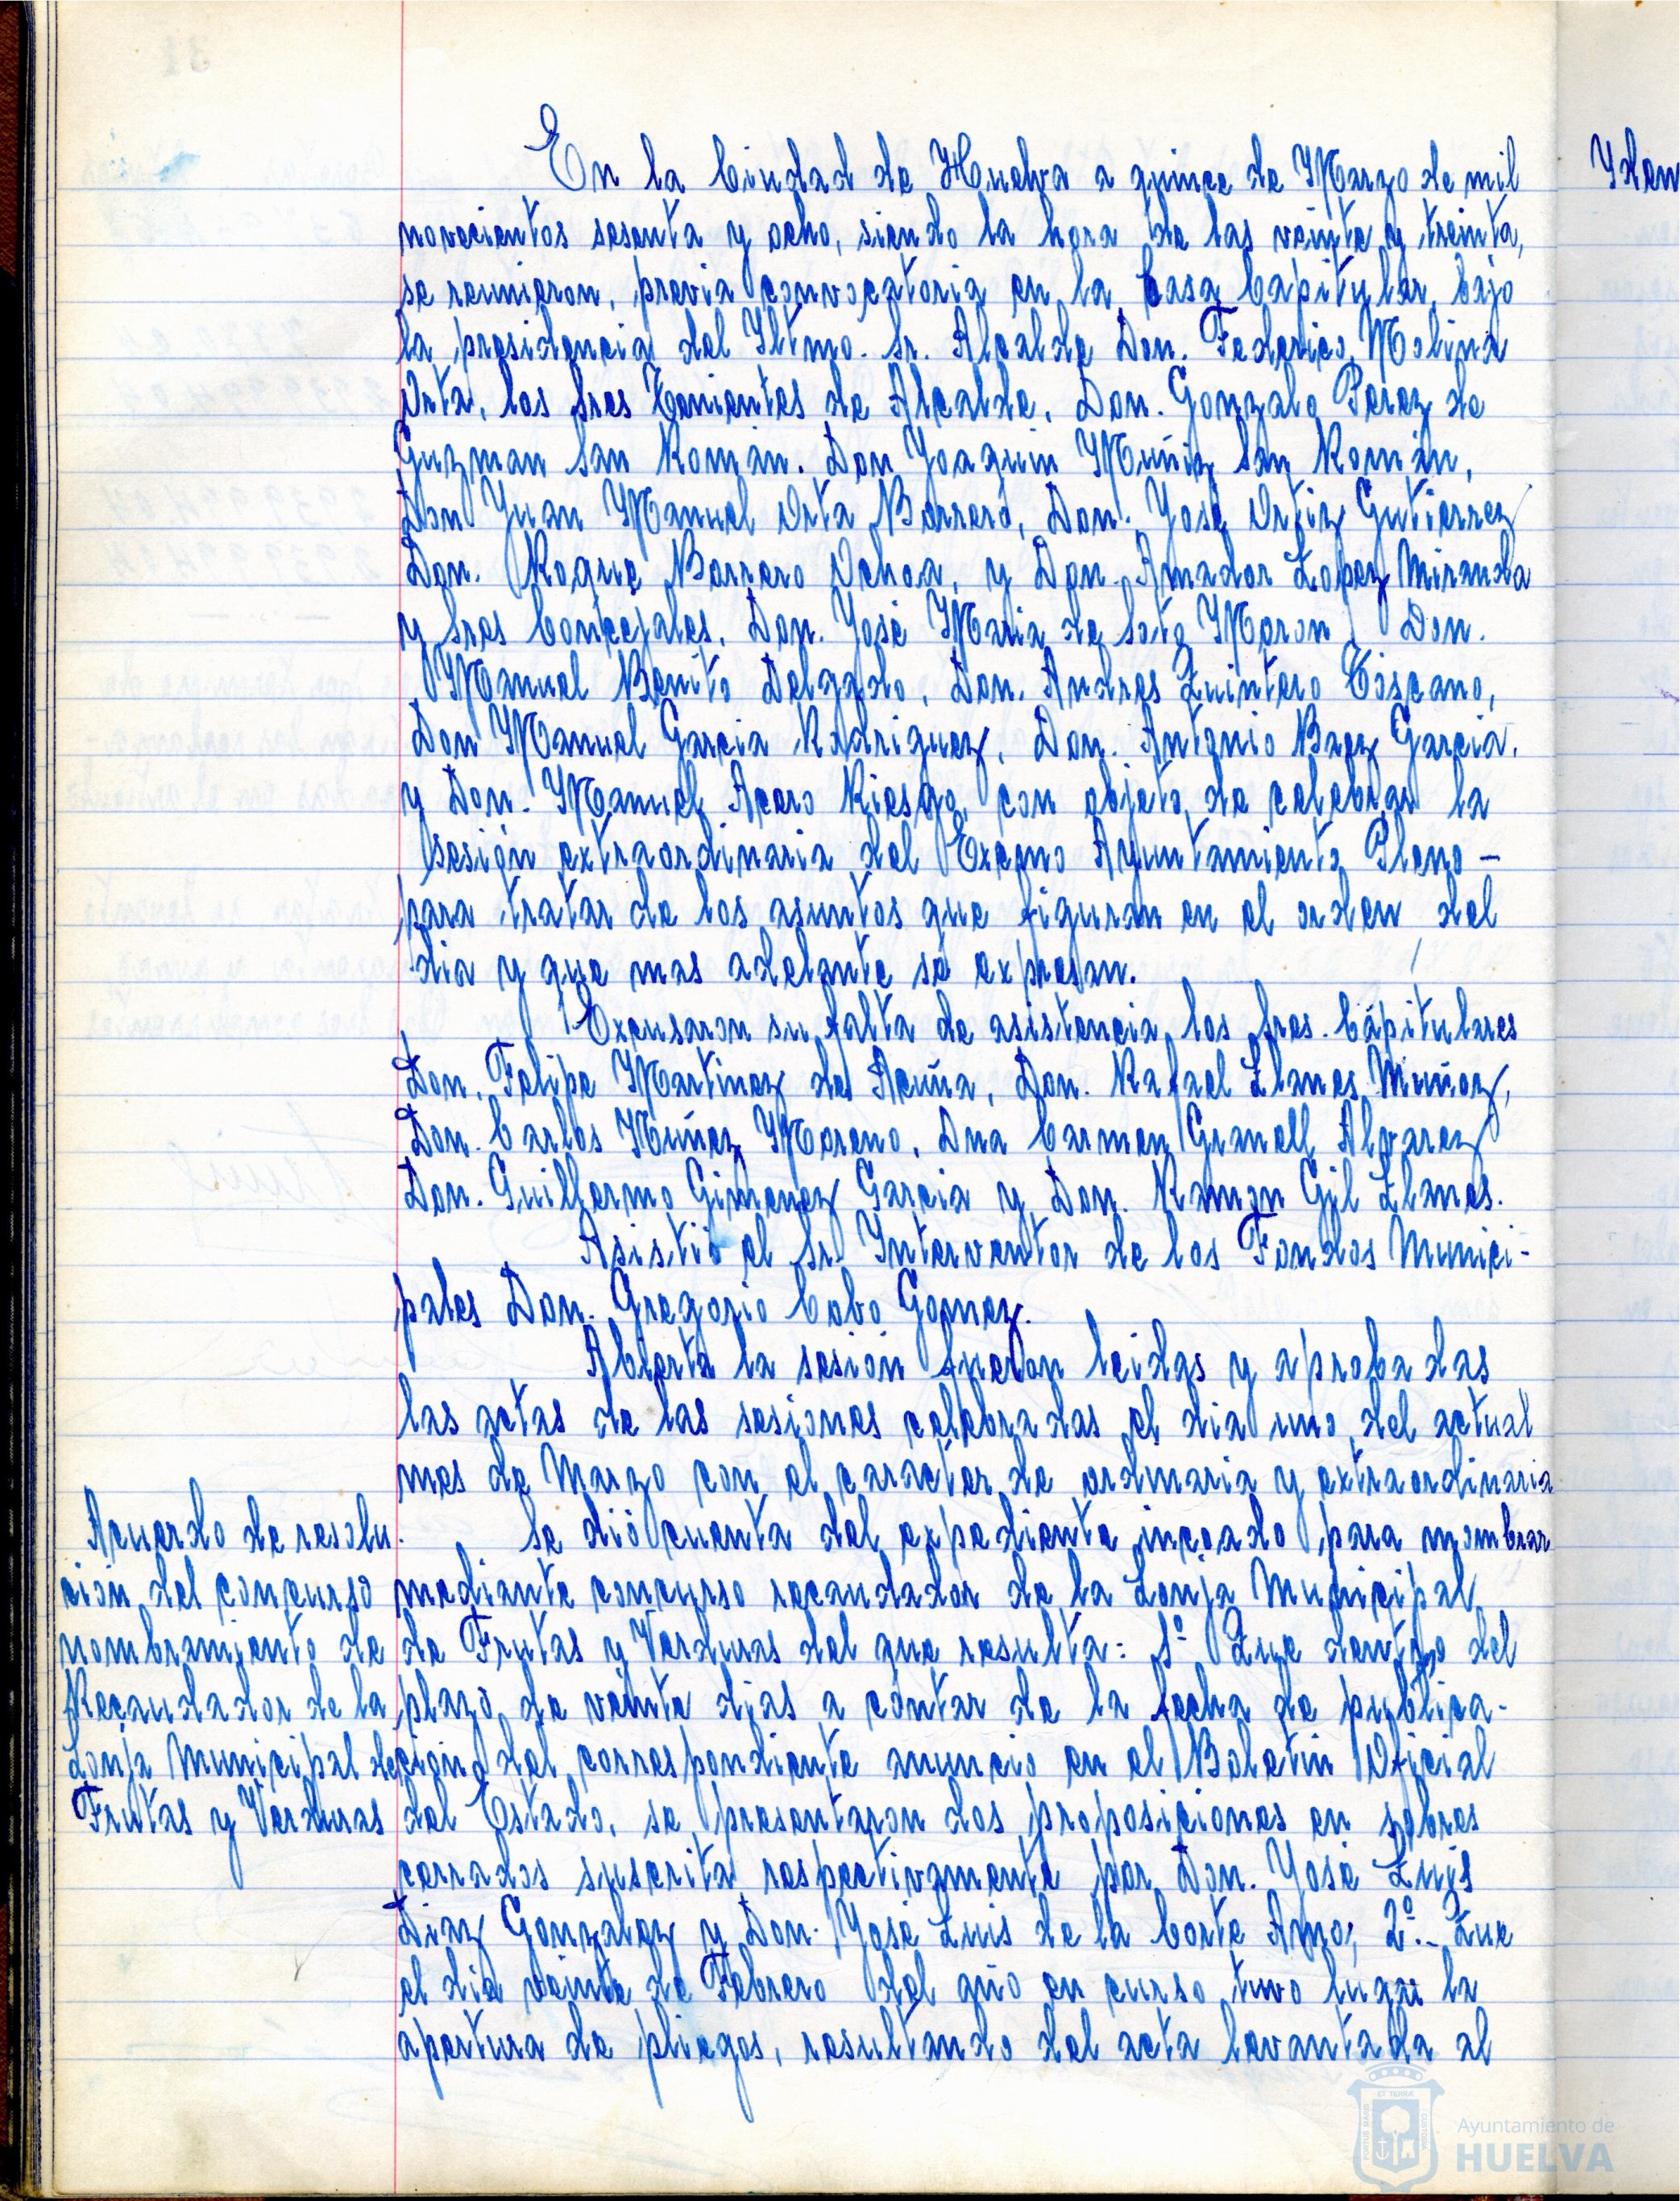 En la Ciudad de Huelva a quince de Marzo de mil
novecientos sesenta y ocho, siendo la hora de las veinte y treinta,
se reunieron, previa convocatoria en la Casa Capitular, bajo
la presidencia del Iltmo. Sr. Alcalde Don. Federico Molina
Orta, los Sres Tenientes de Alcalde, Don. Gonzalo Perez de
Guzman San Román. Don Joaquin Muñiz San Román,
Don Juan Manuel Orta Borrero, Don. José Ortiz Gutierrez
Don. Roque Borrero Ochoa, y Don. Amador Lopez Miranda
y Sres Concejales, Don. José Maria de Soto Moron, Don.
Manuel Benito Delgado, Don. Andres Quintero Toscano,
Don Manuel Garcia Rodriguez, Don. Antonio Baez Garcia.
y Don. Manuel Acero Riesgo, con objeto de celebrar la
sesión extraordinaria del Excmo Ayuntamiento Pleno -
para tratar de los asuntos que figuran en el orden del
dia y que mas adelante se expresan.
Excusaron su falta de asistencia los Sres. Cápitulares
Don. Felipe Martinez de Acuña, Don. Rafael Llanes Muñoz,
Don. Carlos Núñez Moreno, Dna Carmen Granell Alvarez
Don. Guillermo Gimenez Garcia y Don. Ramon Gil Llanes.
Asistió el Sr. Interventor de los Fondos Munici-
pales Don. Gregorio Cobo Gomez.
Abierta la sesión fueron leidas y aprobadas
las actas de las sesiones celebradas el dia uno del actual
mes de Marzo con el caracter de ordinaria y extraordinaria
Acuerdo de resolu.
ción del concurso
nombramiento de
Recaudador de la
Lonja Municipal de
Frutas y Verduras
Se dió cuenta del expediente incoado para nombrar
mediante concurso recaudador de la Lonja Municipal
de Frutas y Verduras del que resulta: 1º Que dentro del
plazo de veinte dias a contar de la fecha de publica-
ción del correspondiente anuncio en el Boletin Oficial
del Estado, se presentaron dos proposiciones en sobres
cerrados suscrita respectivamente por Don. José Luis
Diaz Gonzalez y Don. José Luis de la Corte Amo; 2º.- Que
el dia veinte de Febrero del año en curso tuvo lugar la
apertura de pliegos, resultando del acta levantada al
Ayuntamiento de
HUELVA